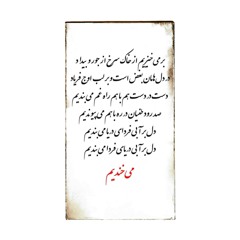 برمی خیزیم از خاک سرخ از جور و بیداد
در دل مان بغض است و بر لب اوج فریاد
دست در دست هم با هم راه غم می بندیم
صد رود خیزان در ره با هم می پیوندیم
دل بر آبی فردای دریا می بندیم
دل بر آبی دریای فردا می بندیم
می خندیم